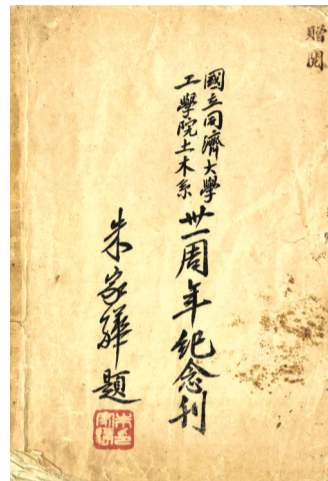 贈閱
國立同濟大學
工學院土木系
卅一周年紀念刊
朱家驊題